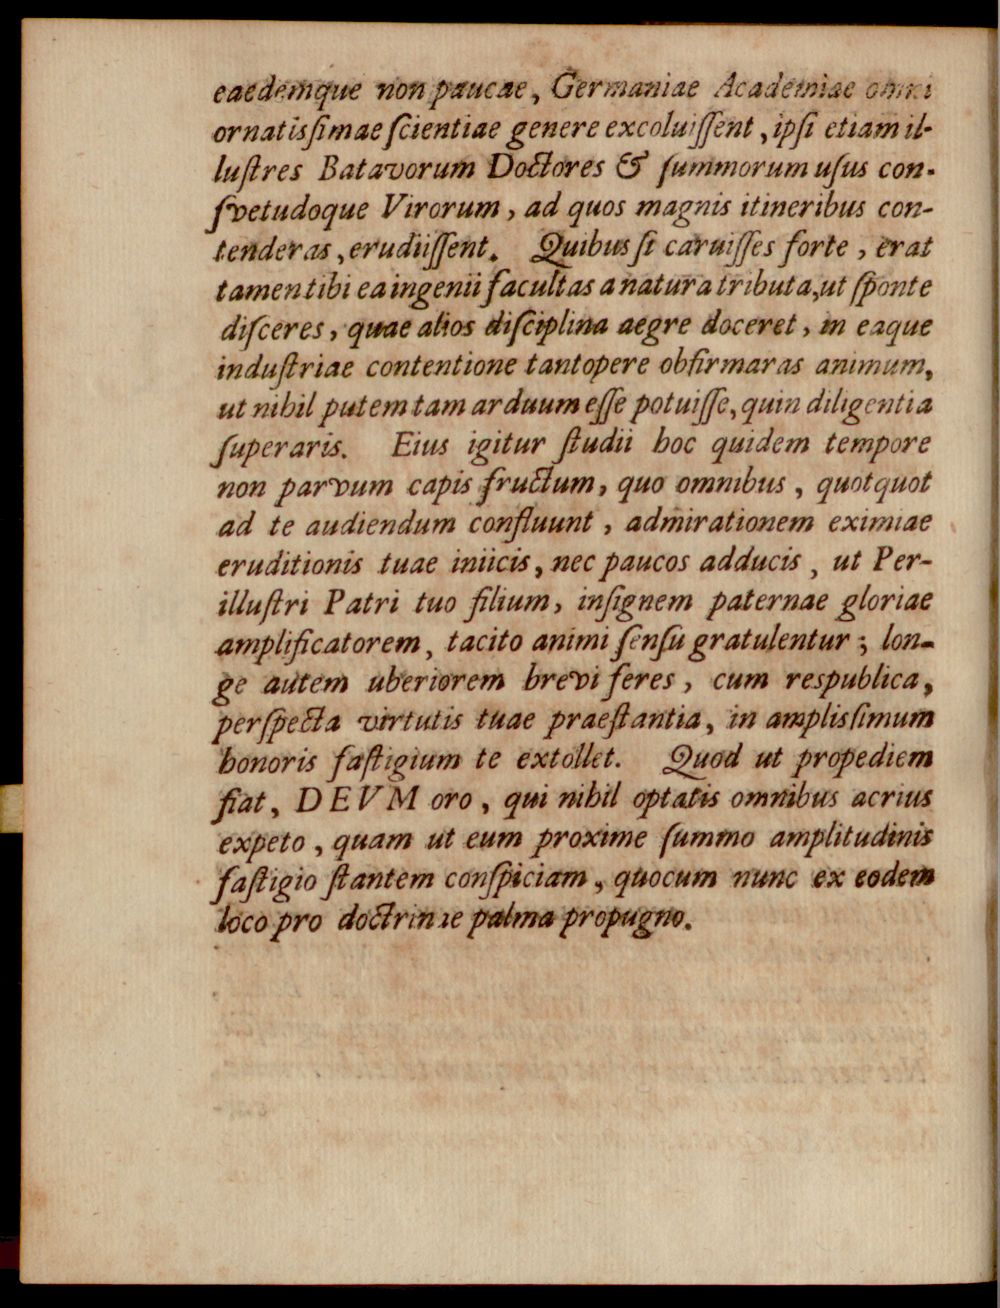 eaedemque non paucae, Germaniae Academiae omni
ornatisſimae ſcientiae genere excoluiſſent, ipſi etiam il-
luſtres Batavorum Doctores & ſummorum uſus con-
ſvetudoque Virorum, ad quos magnis itineribus con-
tenderas, erudiiſſent. Quibus ſi caruiſſes forte, erat
tamen tibi ea ingenii facultas a natura tributa, ut ſponte
diſceres, quae alios diſciplina aegre doceret, in eaque
induſtriae contentione tantopere obfirmaras animum,
ut nihil putem tam arduum eſſe potuiſſe, quin diligentia
ſuperaris. Eius igitur ſtudii hoc quidem tempore
non parvum capis fructum, quo omnibus, quotquot
ad te audiendum confluunt, admirationem eximiae
eruditionis tuae iniicis, nec paucos adducis, ut Per-
illuſtri Patri tuo filium, inſignem paternae gloriae
amplificatorem, tacito animi ſenſu gratulentur; lon-
ge autem uberiorem brevi feres, cum respublica,
perſpecta virtutis tuae praeſtantia, in amplisſimum
honoris faſtigium te extollet. Quod ut propediem
fiat, DEVM oro, qui nihil optatis omnibus acrius
expeto, quam ut eum proxime ſummo amplitudinis
faſtigio ſtantem conſpiciam, quocum nunc ex eodem
loco pro doctrinae palma propugno.